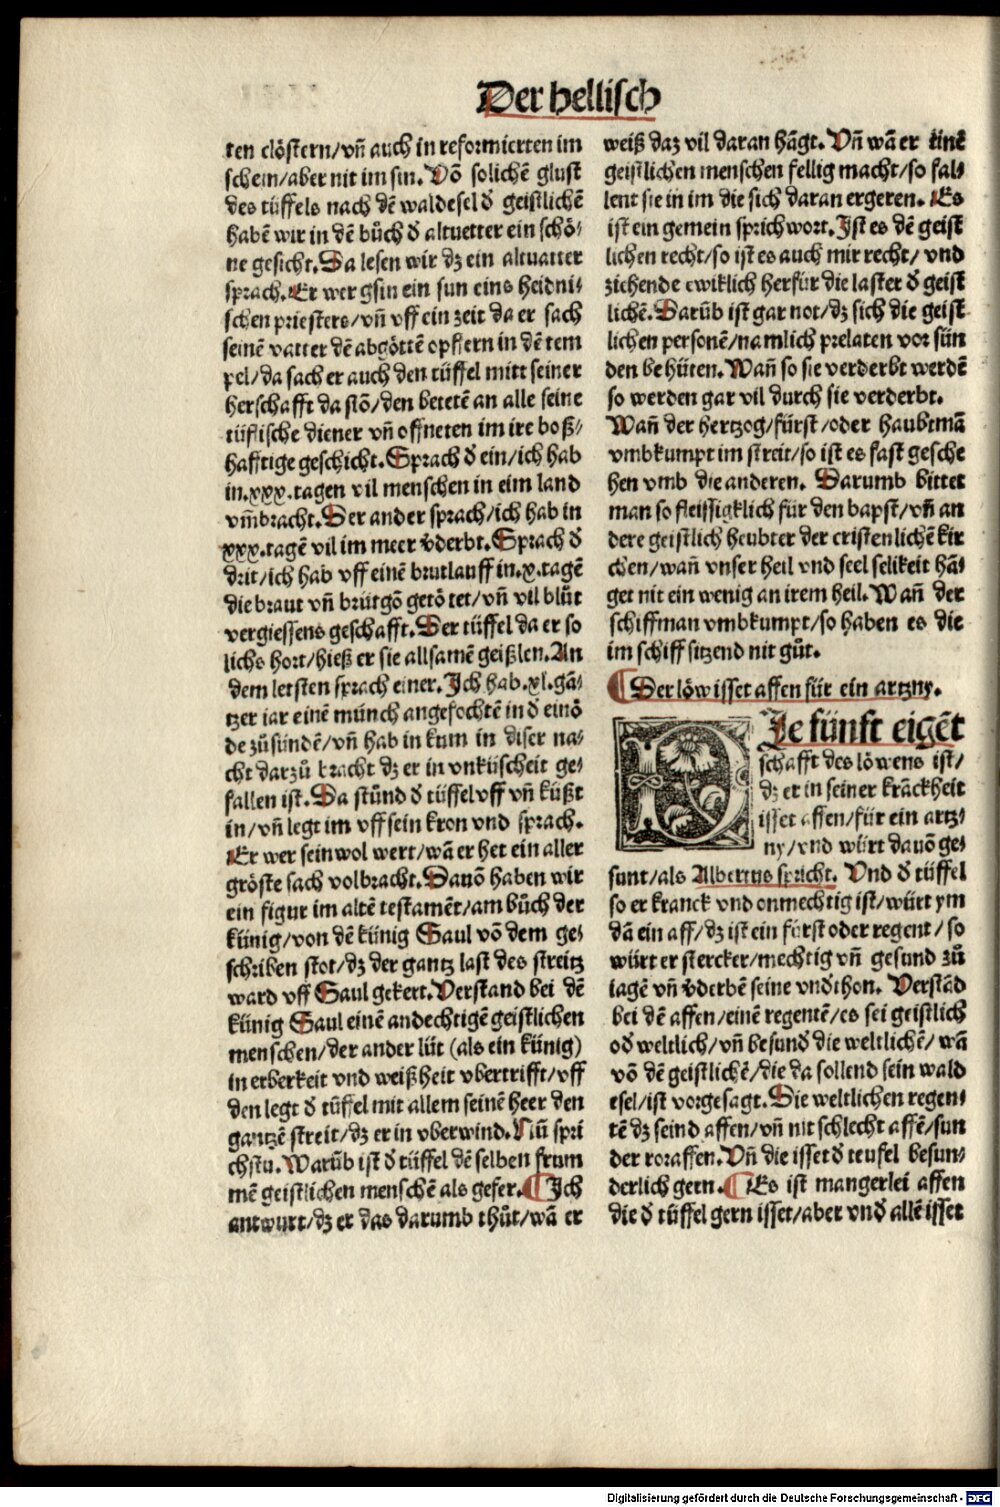 Der hellisch
ten clöstern/vn̄ auch in reformierten im
schein/aber nit im sin. Vō solichē glust
des tüffels nach dē waldesel đ geistlichē
habē wir in dē bůch đ altuetter ein schö⸗
ne gesicht. Da lesen wir dz ein altuatter
sprach. Er wer gsin ein sun eins heidni⸗
schen priesters/vn̄ vff ein zeit da er sach
seinē vatter dē abgöttē opffern in dē tem
pel/da sach er auch den tüffel mitt seiner
herschafft da stō/den betetē an alle seine
tüflische diener vn̄ offneten im ire boß⸗
hafftige geschicht. Sprach đ ein/ich hab
in.xxx.tagen vil menschen in eim land
vm̄bracht. Der ander sprach/ich hab in
xxx.tagē vil im meer v̄derbt. Sprach đ
drit/ich hab vff einē brutlauff in.x.tagē
die braut vn̄ brütgō getötet/vn̄ vil blůt
vergiessens geschafft. Der tüffel da er so
lichs hort/hieß er sie allsamē geißlen. An
dem letsten sprach einer. Ich hab.xl.gā⸗
tzer iar einē münch angefochtē in đ einö
de zů sündē/vn̄ hab in kum in diser na⸗
cht darzů bracht dz er in vnküscheit ge⸗
fallen ist. Da stůnd đ tüffel vff vn̄ küßt
in/vn̄ legt im vff sein kron vnd sprach.
Er wer sein wol wert/wā er het ein aller
gröste sach volbracht. Dauō haben wir
ein figur im altē testamēt/am bůch der
künig/von dē künig Saul vō dem ge⸗
schriben stot/dz der gantz last des streitz
ward vff Saul gekert. Verstand bei dē
künig Saul einē andechtigē geistlichen
menschen/der ander lüt (als ein künig)
in erberkeit vnd weißheit vbertrifft/vff
den legt đ tüffel mit allem seinē heer den
gantzē streit/dz er in vberwind. Nū spri
chstu. Warūb ist đ tüffel dē selben frum
mē geistlichen menschē als gefer. ¶ Ich
antwurt/dz er das darumb thůt/wā er
weiß daz vil daran hāgt. Vn̄ wā er einē
geistlichen menschen fellig macht/so fal⸗
lent sie in im die sich daran ergeren. Es
ist ein gemein sprichwort. Ist es dē geist
lichen recht/so ist es auch mir recht/ vnd
ziehende ewiklich herfür die laster đ geist
lichē. Darūb ist gar not/dz sich die geist
lichen personē/namlich prelaten vor sün
den behüten. Wan̄ so sie verderbt werdē
so werden gar vil durch sie verderbt.
Wan̄ der hertzog/fürst/oder haubtmā
vmbkumpt im streit/so ist es fast gesche
hen vmb die anderen. Darumb bittet
man so fleissigklich für den bapst/vn̄ an
dere geistlich heubter der cristenlichē kir
chen/wan̄ vnser heil vnd seel selikeit hā⸗
get nit ein wenig an irem heil. Wan̄ der
schiffman vmbkumpt/so haben es die
im schiff sitzend nit gůt.
¶ Der löw isset affen für ein artzny.
DIe fünft eigēt
schafft des löwens ist/
dz er in seiner krāckheit
isset affen/für ein artz⸗
ny/vnd würt dauō ge⸗
sunt/als Albertus spricht. Vnd đ tüffel
so er kranck vnd onmechtig ist/würt ym
dā ein aff/dz ist ein fürst oder regent/so
würt er stercker/mechtig vn̄ gesund zů
iagē vn̄ v̄derbē seine vnđthon. Verstād
bei dē affen/einē regentē/es sei geistlich
ođ weltlich/vn̄ besunđ die weltlichē/wā
vō dē geistlichē/die da sollend sein wald
esel/ist vorgesagt. Die weltlichen regen⸗
tē dz seind affen/vn̄ nit schlecht affē/sun
der roraffen. Vn̄ die isset đ teufel besun⸗
derlich gern. ¶ Es ist mangerlei affen
die đ tüffel gern isset/aber vnđ allē isset
Digitalisierung gefördert durch die Deutsche Forschungsgemeinschaft - DFG